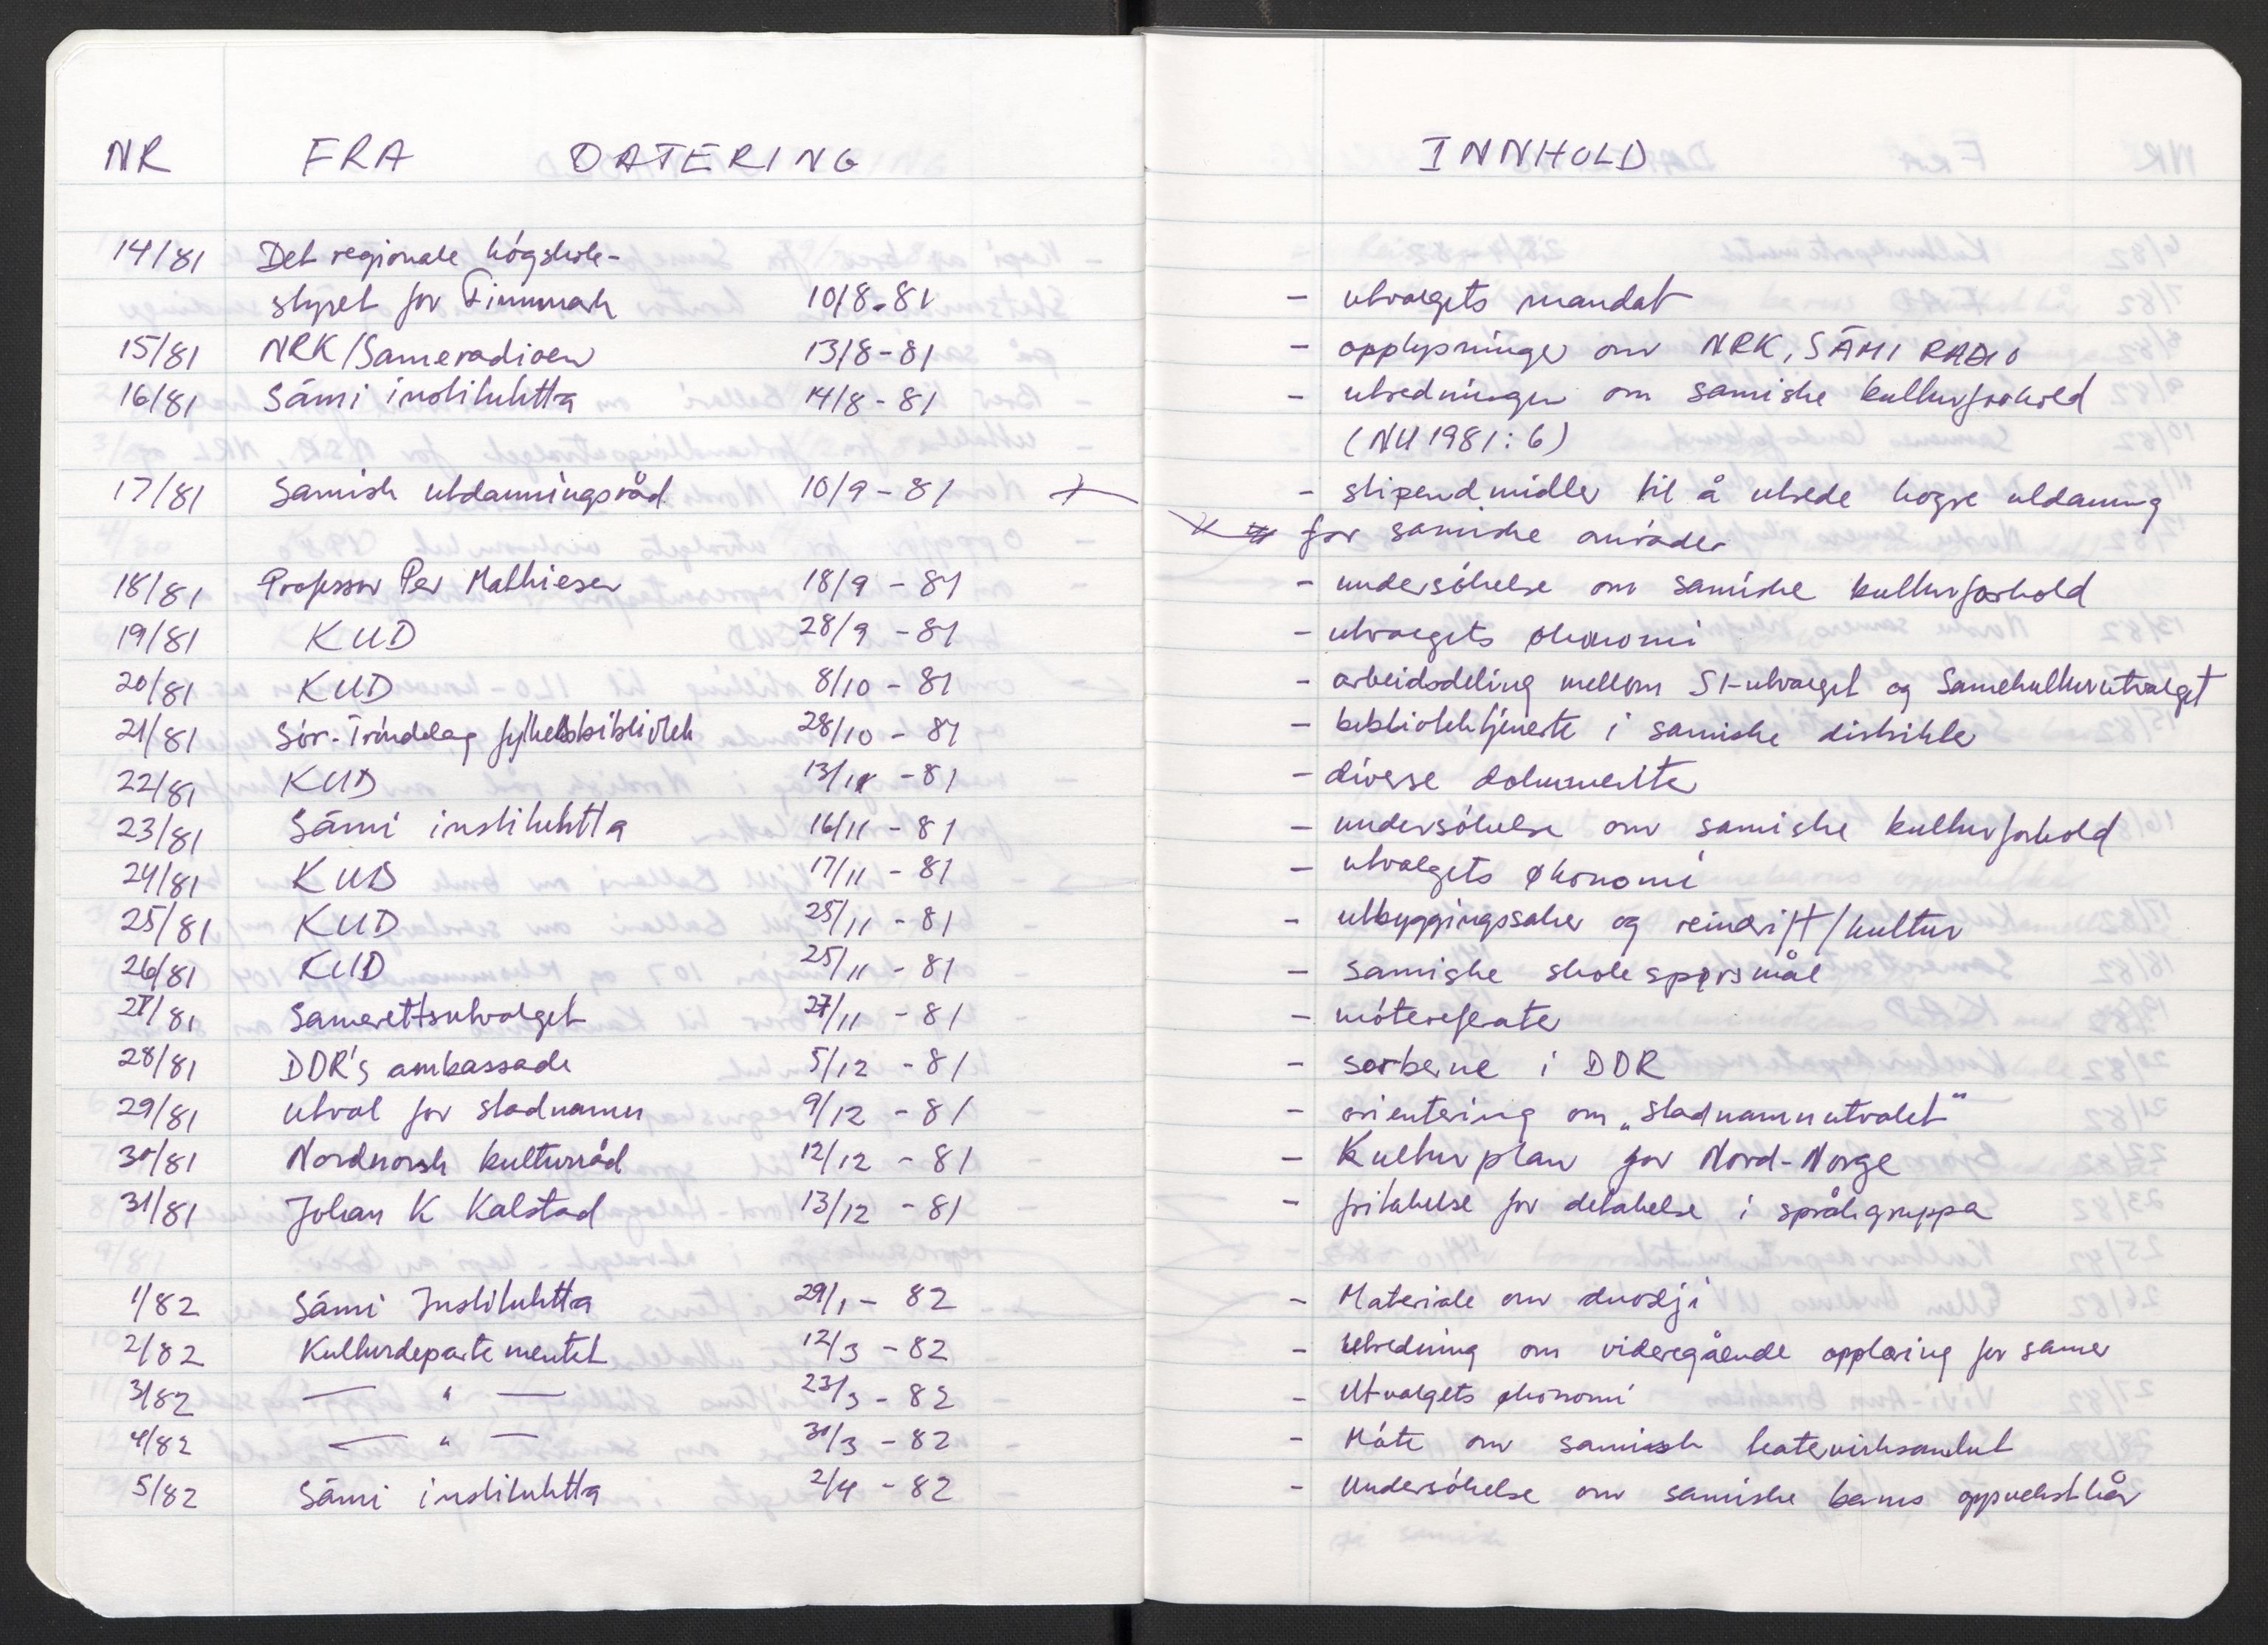 NR FRA DATERING INNHOLD
14/81 Det regionale högskole-
styret for Finnmark 10/8-81 - utvalgets mandat
15/81 NRK/Sameradioen 13/8-81 - opplysninger om NRK, SÁMI RADIO
16/81 Sámi instituhtta 14/8-81 - utredningen om samiske kulturforhold
(NU 1981:6)
17/81 Samisk utdanningsråd 10/9-81 - stipendmidler til å utrede högre utdanning
for samiske områder
18/81 Professor Per Mathiesen 18/9-81 - undersökelse om samiske kulturforhold
19/81 KUD 28/9-81 - utvalgets økonomi
20/81 KUD 8/10-81 - arbeidsdeling mellom SI-utvalget og Samekulturutvalget
21/81 Sör-Tröndelag fylkesbibliotek 28/10-81 - bibliotektjeneste i samiske distrikter
22/81 KUD 13/11-81 - diverse dokumenter
23/81 Sámi instituhtta 16/11-81 - undersökelse om samiske kulturforhold
24/81 KUD 17/11-81 - utvalgets økonomi
25/81 KUD 25/11-81 - utbyggingssaker og reindrift/kultur
26/81 KUD 25/11-81 - samiske skolespørsmål
27/81 Samerettsutvalget 27/11-81 - mötereferater
28/81 DDR's ambassade 5/12-81 - sorberne i DDR
29/81 Utval for stadnamn 9/12-81 - orientering om „stadnamnutvalet"
30/81 Nordnorsk kulturråd 12/12-81 - Kulturplan for Nord-Norge
31/81 Johan K Kalstad 13/12-81 - fritakelse for deltakelse i språkgruppa
1/82 Sámi Instituhtta 29/1-82 - Materiale om duodji
2/82 Kulturdepartementet 12/3-82 - utredning om videregående opplæring for samer
3/82 — " — 23/3-82 - Utvalgets økonomi
4/82 — " — 30/3-82 - Möte om samisk teatervirksomhet
5/82 Sámi instituhtta 2/4-82 - Undersökelse om samiske barns oppvekstkår